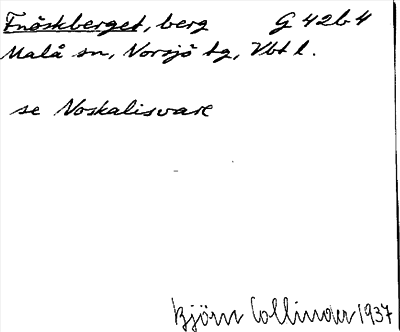 Fnöskberget, berg G 42b4
Malå sn, Norsjö tg, Vbt l.
se Noskalisvare
Björn Collinder 1937